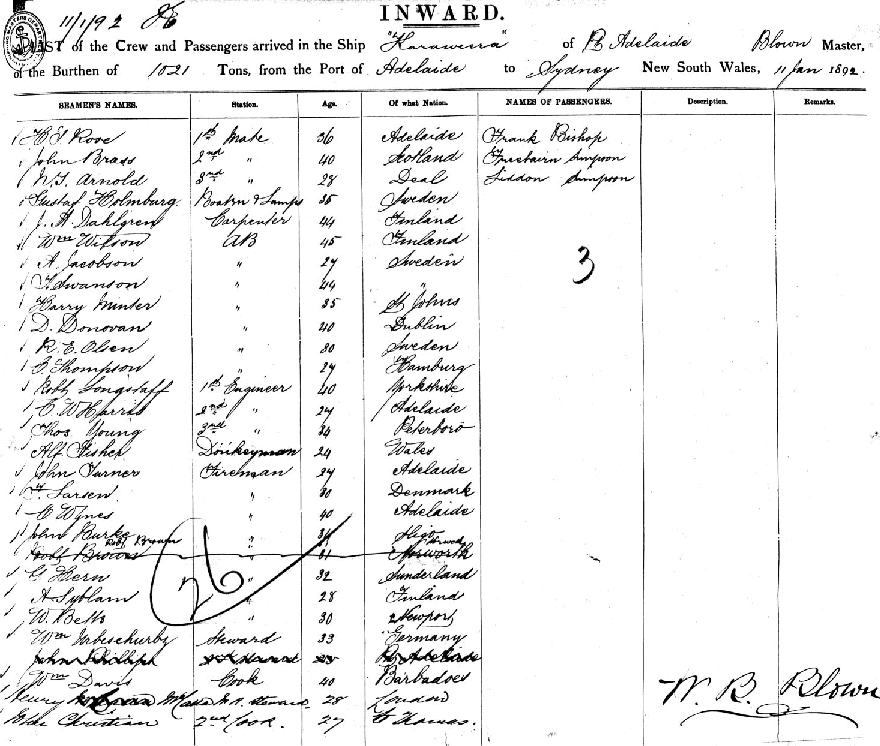 11/1/92
INWARD.
LIST of the Crew and Passengers arrived in the Ship "Karawera" of Pt Adelaide Blown Master,
of the Burthen of 1021 Tons, from the Port of Adelaide to Sydney New South Wales, 11 Jan 1892.
SEAMEN'S NAMES. Station. Age. Of what Nation. NAMES OF PASSENGERS. Description. Remarks.
1st Mate 36 Adelaide Frank Bishop
John Brass 2nd " 40 Scotland Simpson
Arnold 3rd " 28 Deal Siddon Simpson
Gustaf Holmburg Boatsn & Lamps 35 Sweden
J. A. Dahlgren Carpenter 44 Finland
Wm Wilson AB 45 Finland
A. Jacobson " 27 Sweden
Swanson " 44 "
Harry Minter " 35 St Johns
3
D. Donovan " 40 Dublin
R. E. Olsen " 30 Sweden
Thompson " 27 Hamburg
Robt Longstaff 1st Engineer 40 Yorkshire
C. W. Harris 2nd " 27 Adelaide
Thos. Young 3rd " 34 Peterboro
Alf Fisher Donkeyman 24 Wales
John Turner Fireman 27 Adelaide
Larsen " 30 Denmark
Wynes " 40 Adelaide
John Burke " Sligo
Robt Brown Norway
Robt Brown "
26
Hern " 32 Sunderland
A. " 28 Finland
W. Betts " 30 Newport
Wm Steward 33 Germany
John Phillips Pt Adelaide
Wm Davis Cook 40 Barbadoes
Henry 28 London
Christian 2nd Cook 27 St Thomas.
W. B. Blown